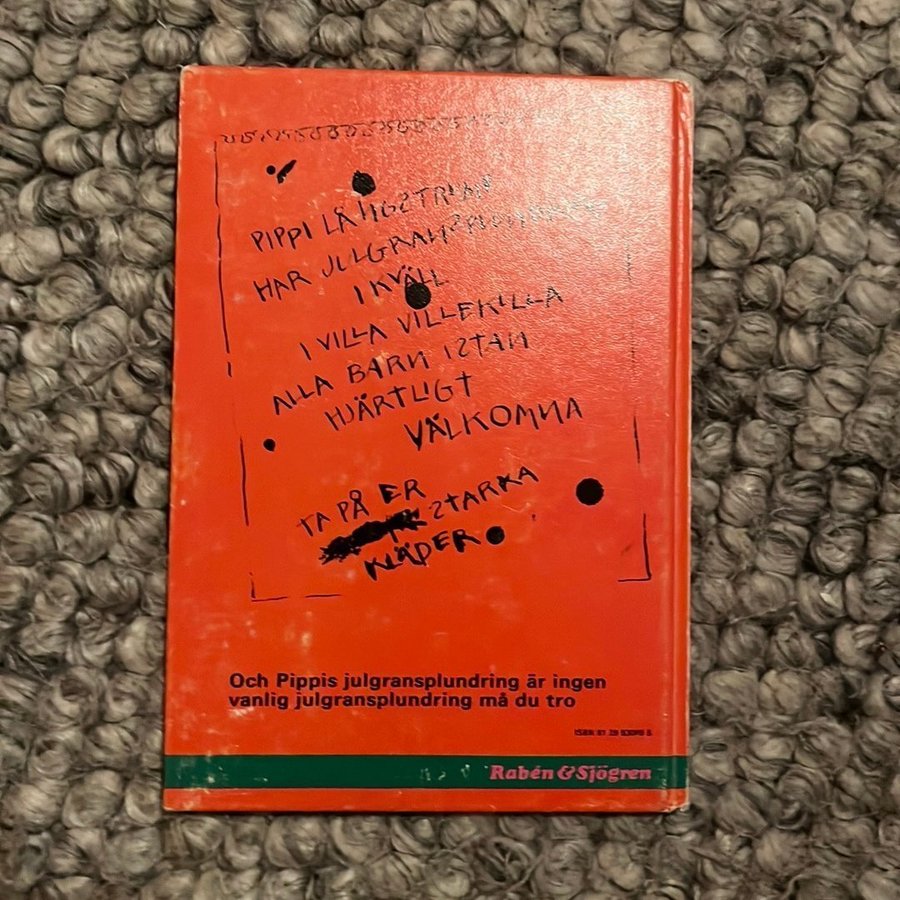 PIPPI LÅNGSTRUMP
HAR JULGRANSPLUNDRING
I KVÄLL
I VILLA VILLEKILLA
ALLA BARN ISTAN
HJÄRTLIGT
VÄLKOMNA
TA PÅ ER
STARKA
KLÄDER
Och Pippis julgransplundring är ingen
vanlig julgransplundring må du tro
ISBN 91 29
Rabén & Sjögren